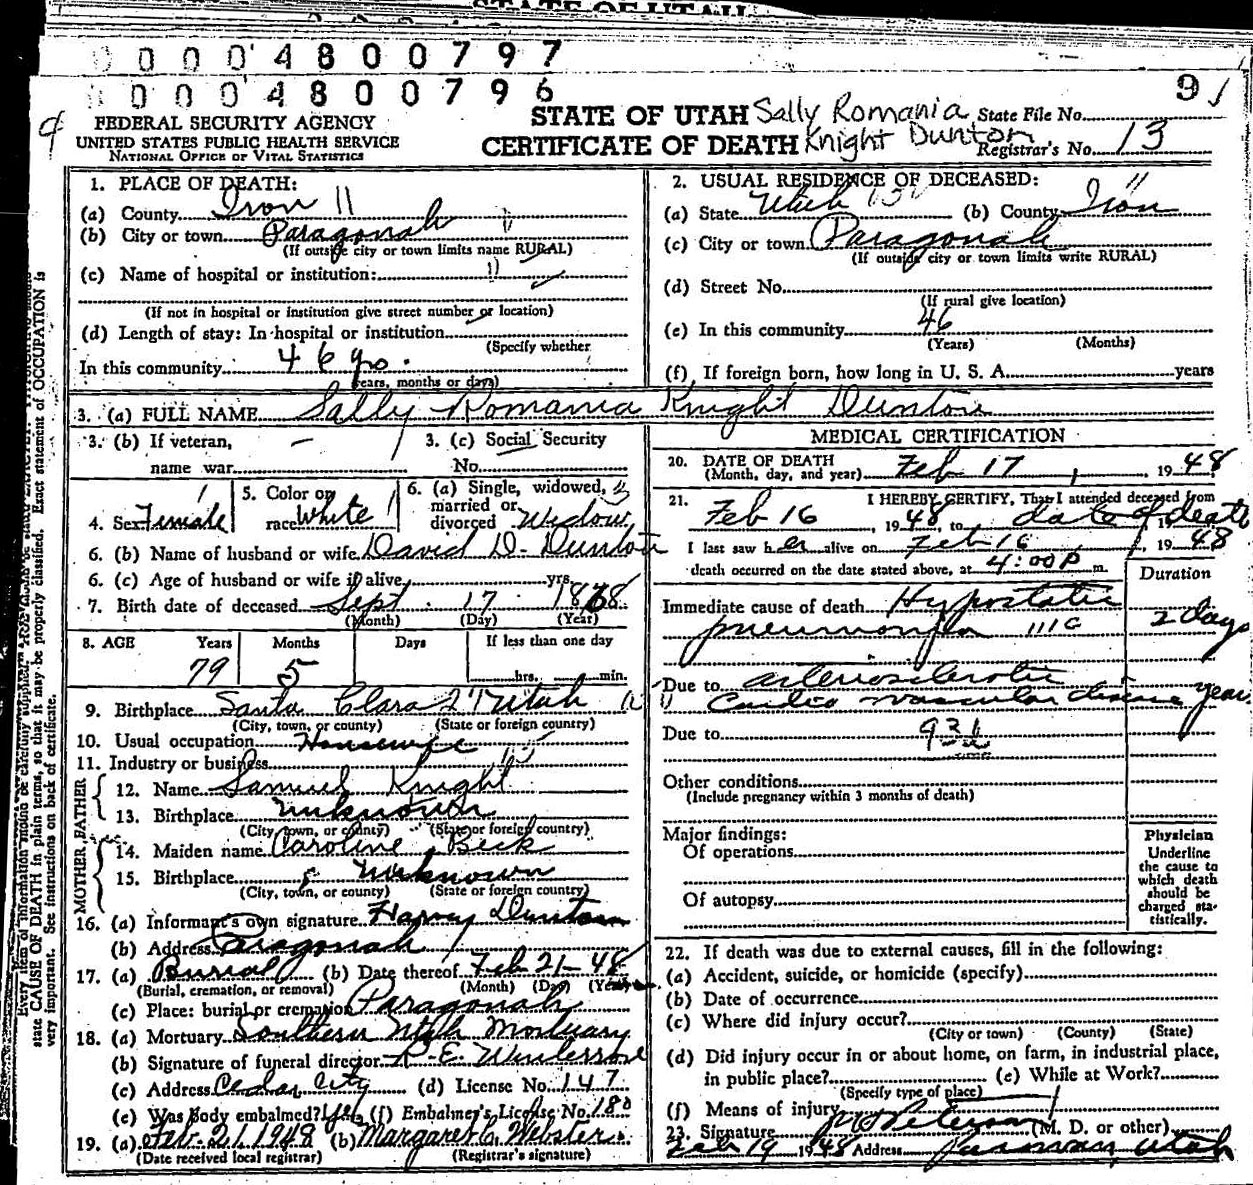 STATE OF UTAH
0 0 0 0 4 8 0 0 7 9 7
0 0 0 0 4 8 0 0 7 9 6
9
FEDERAL SECURITY AGENCY
UNITED STATES PUBLIC HEALTH SERVICE
NATIONAL OFFICE OF VITAL STATISTICS
STATE OF UTAH Sally Romania State File No.
CERTIFICATE OF DEATH Knight Dunton Registrar's No. 13
1. PLACE OF DEATH:
(a) County Iron 11
(b) City or town Paragonah
(If outside city or town limits name RURAL)
(c) Name of hospital or institution:
(If not in hospital or institution give street number or location)
(d) Length of stay: In hospital or institution
(Specify whether
In this community 46 yrs.
years, months or days)
2. USUAL RESIDENCE OF DECEASED:
(a) State Utah (b) County Iron
(c) City or town Paragonah
(If outside city or town limits write RURAL)
(d) Street No.
(If rural give location)
(e) In this community 46
(Years) (Months)
(f) If foreign born, how long in U. S. A. years
3. (a) FULL NAME Sally Romania Knight Dunton
3. (b) If veteran, — 3. (c) Social Security
name war No.
4. Sex Female 5. Color or race White 6. (a) Single, widowed, married or divorced Widow
6. (b) Name of husband or wife David D. Dunton
6. (c) Age of husband or wife if alive yrs.
7. Birth date of deceased Sept. 17 1868
(Month) (Day) (Year)
8. AGE Years Months Days If less than one day
79 5 hrs. min.
9. Birthplace Santa Clara Utah
(City, town, or county) (State or foreign country)
10. Usual occupation Housewife
11. Industry or business
FATHER
12. Name Samuel Knight
13. Birthplace unknown
(City town, or county) (State or foreign country)
MOTHER
14. Maiden name Caroline Beck
15. Birthplace unknown
(City, town, or county) (State or foreign country)
16. (a) Informant's own signature Harvey Dunton
(b) Address Paragonah
17. (a) Burial (b) Date thereof Feb 21-48
(Burial, cremation, or removal) (Month) (Day) (Year)
(c) Place: burial or cremation Paragonah
18. (a) Mortuary Southern Utah Mortuary
(b) Signature of funeral director R. E. Winterrose
(c) Address Cedar City (d) License No. 147
(e) Was body embalmed? Yes (f) Embalmer's License No. 180
19. (a) Feb. 21. 1948 (b) Margaret C. Webster
(Date received local registrar) (Registrar's signature)
MEDICAL CERTIFICATION
20. DATE OF DEATH
(Month, day, and year) Feb 17, 1948
21. I HEREBY CERTIFY, That I attended deceased from
Feb 16, 1948, to date of death 19
I last saw her alive on Feb 16, 1948
death occurred on the date stated above, at 4:00 P m.
Duration
Immediate cause of death Hypostatic
pneumonia 2 days
Due to arteriosclerotic
Cardio vascular disease years
Due to
Other conditions
(Include pregnancy within 3 months of death)
Major findings:
Of operations
Of autopsy
Physician
Underline
the cause to
which death
should be
charged sta-
tistically.
22. If death was due to external causes, fill in the following:
(a) Accident, suicide, or homicide (specify)
(b) Date of occurrence
(c) Where did injury occur?
(City or town) (County) (State)
(d) Did injury occur in or about home, on farm, in industrial place,
in public place? (e) While at Work?
(Specify type of place)
(f) Means of injury
23. Signature Peterson (M. D. or other)
Feb 19 1948 Address Parowan, Utah
state CAUSE OF DEATH in plain terms, so that it may be properly classified. Exact statement of OCCUPATION is
very important. See instructions on back of certificate.